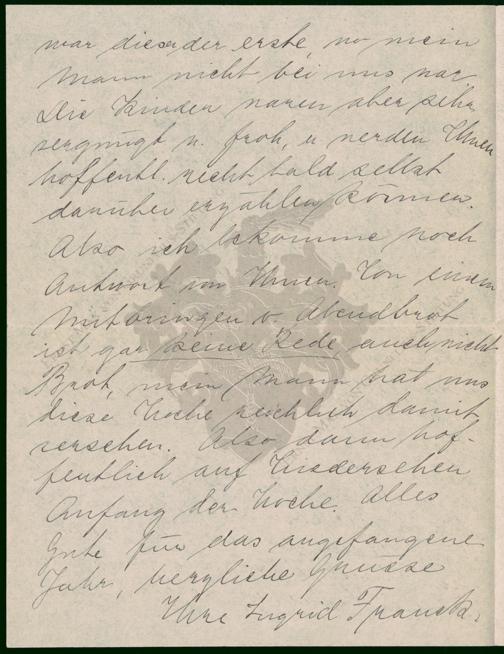 war dieser der erste, wo mein
Mann nicht bei uns war
Die Kinder waren aber sehr
vergnügt u. froh, u werden Ihnen
hoffentl. recht bald selbst
darüber erzählen können.
Also ich bekomme noch
Antwort von Ihnen. Von einem
Mitbringen v. Abendbrot
ist gar keine Rede, auch nicht
Brot, mein Mann hat uns
diese Woche reichlich damit
versehen. Also dann hof-
fentlich auf Wiedersehen
Anfang der Woche. Alles
Gute für das angefangene
Jahr, herzliche Grüsse
Ihre Ingrid Franck.